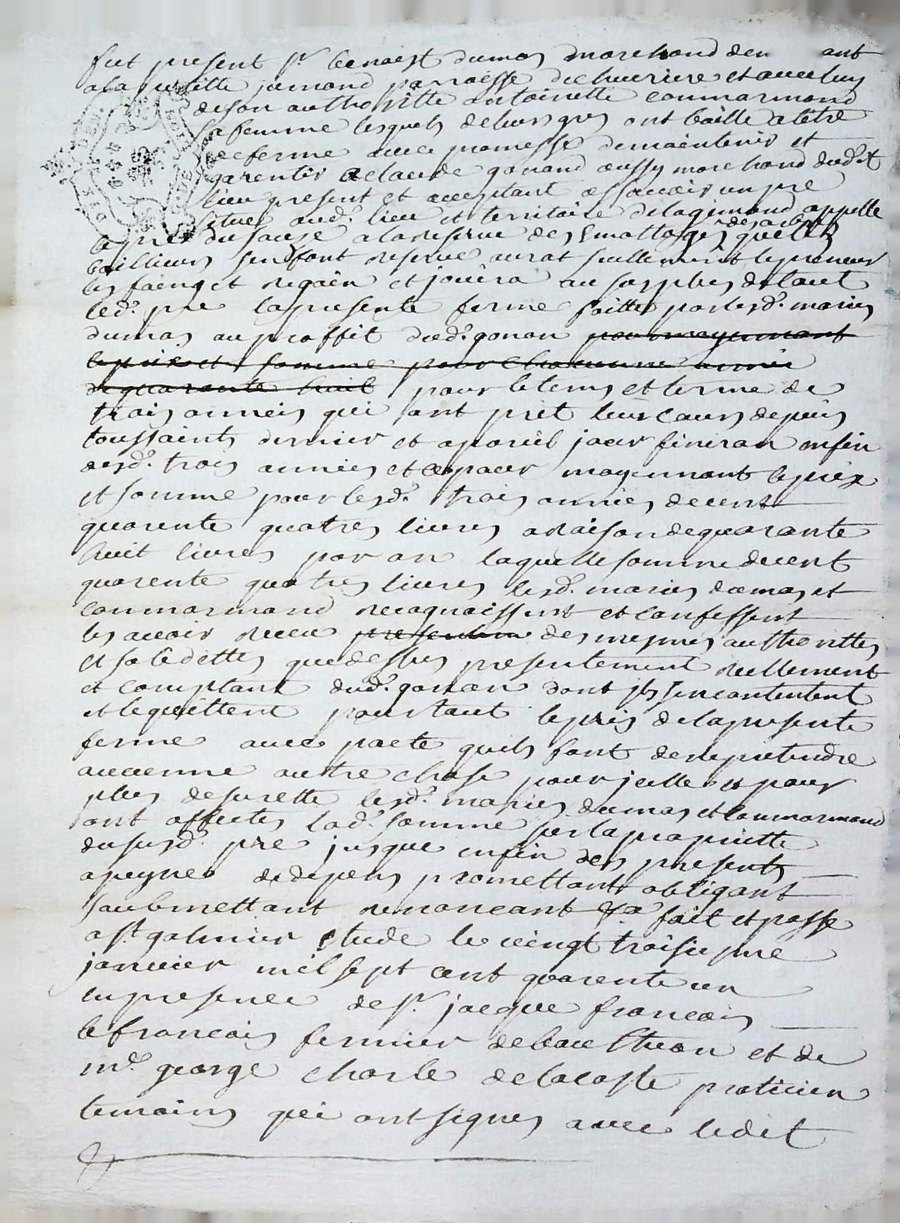 fut present sr benoist dumas marchand dem ant
a la ville jamand parroisse de chevriere et avec luy
de son authoritte antoinette commarmond
sa femme lesquels de leurs gres ont baille a titre
de ferme avec promesse de maintenir et
garentir a claude gonand aussy marchand dudit
lieu present et acceptant assavoir un pre
situe aud. lieu et territoire de lagimond appelle
le pre du sauze a la reserve des
bailleurs sen font reserve aurat seullement le preneur
les foengs et regain et jouira au surplus de tout
led. pre la presente ferme faitte par lesd. maries
dumas au proffit dud. gonan pour moyennant
le prix et somme pour chacunne année
de quarente huit pour le tems et terme de
trois années qui ont prit leur cours depuis
toussaints dernier et a pareil jour finiran enfin
desd. trois années et ce pour moyennant le prix
et somme pour lesd. trois années de cent
quarente quatres livres a raison de quarante
huit livres par an laquelle somme de cent
quarente quatres livres lesd. maries dumas et
commarmond recognaissent et confessent
les avoir receu des mesmes authorittes
et que dessus presentement reellement
et comptant dud. gonan dont ils sen contentent
et le quittent pour tout le pris de la presente
ferme avec pacte quils font de ne pretendre
aucunne autre chose pour jcelle et pour
plus de surette lesd. maries dumas et commarmond
ont affectes lad. somme sur la propriette
du susd. pre jusque enfin des presents
a peynes de depens promettant obligant
soubmettant renoncant & a fait et passe
a st galmier etude le vingt troisiesme
janvier mil sept cent quarente un
en presence de sr. jacque francois
le francois fermier de et de
me. george charle delacoste praticien
temoins qui ont signes avec ledit